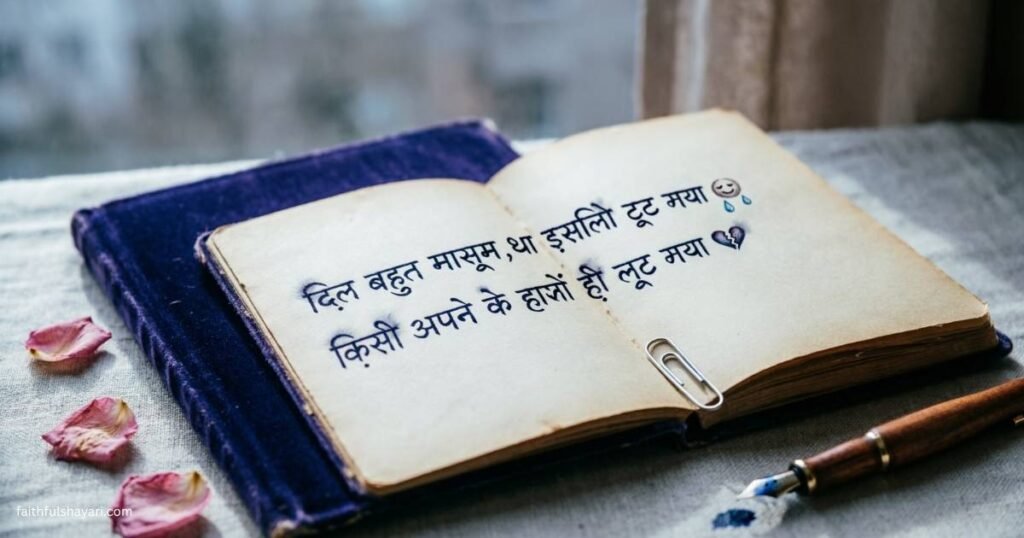 दि़ल बहुत मासूम,था इ़सलिो टूट मया 😢
कि़सी अपने के हाजों ही़ लूट मया 💔
faithfulshayari.com